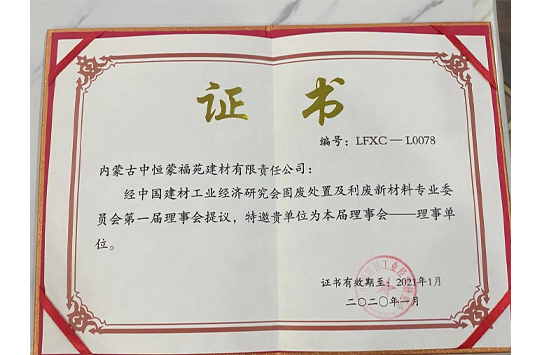 证书
编号：LFXC—L0078
内蒙古中恒蒙福苑建材有限责任公司：
经中国建材工业经济研究会固废处置及利废新材料专业委
员会第一届理事会提议，特邀贵单位为本届理事会——理事单
位。
证书有效期至：2021年1月
二〇二〇年一月